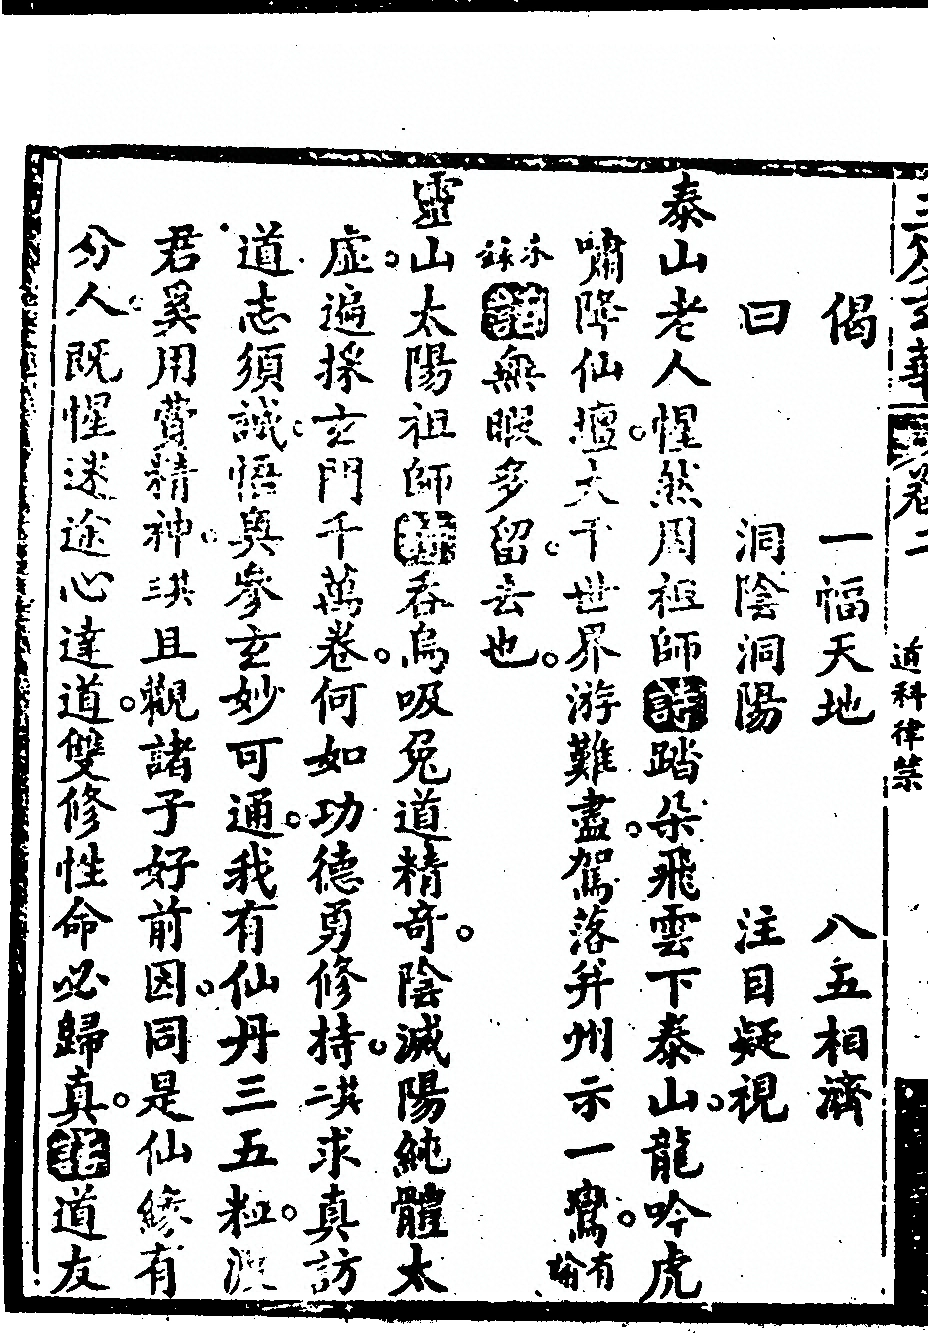 卷二 道科律禁
偈 一幅天地 八五相濟
曰 洞陰洞陽 注目疑視
泰山老人惺然周祖師詩踏朵飛雲下泰山龍吟虎
嘯降仙壇大千世界游難盡駕落并州示一鸞有
無暇多留去也
靈山太陽祖師吞烏吸兔道精奇陰滅陽純體太
虛遍採玄門千萬卷何如功德勇修持二其求真訪
道志須誠悟奧參玄妙可通我有仙丹三五粒
君奚用費精神三其且觀諸子好前因同是仙緣有
分人既惺迷途心達道雙修性命必歸真道友